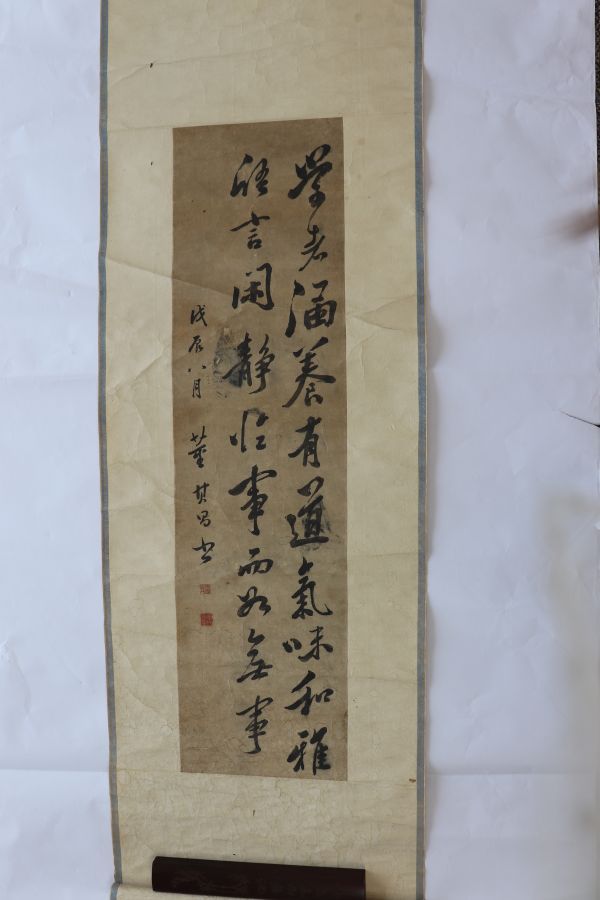 學者涵養有道氣味和雅
語言閑靜臨事而如無事
戊辰八月 董其昌書